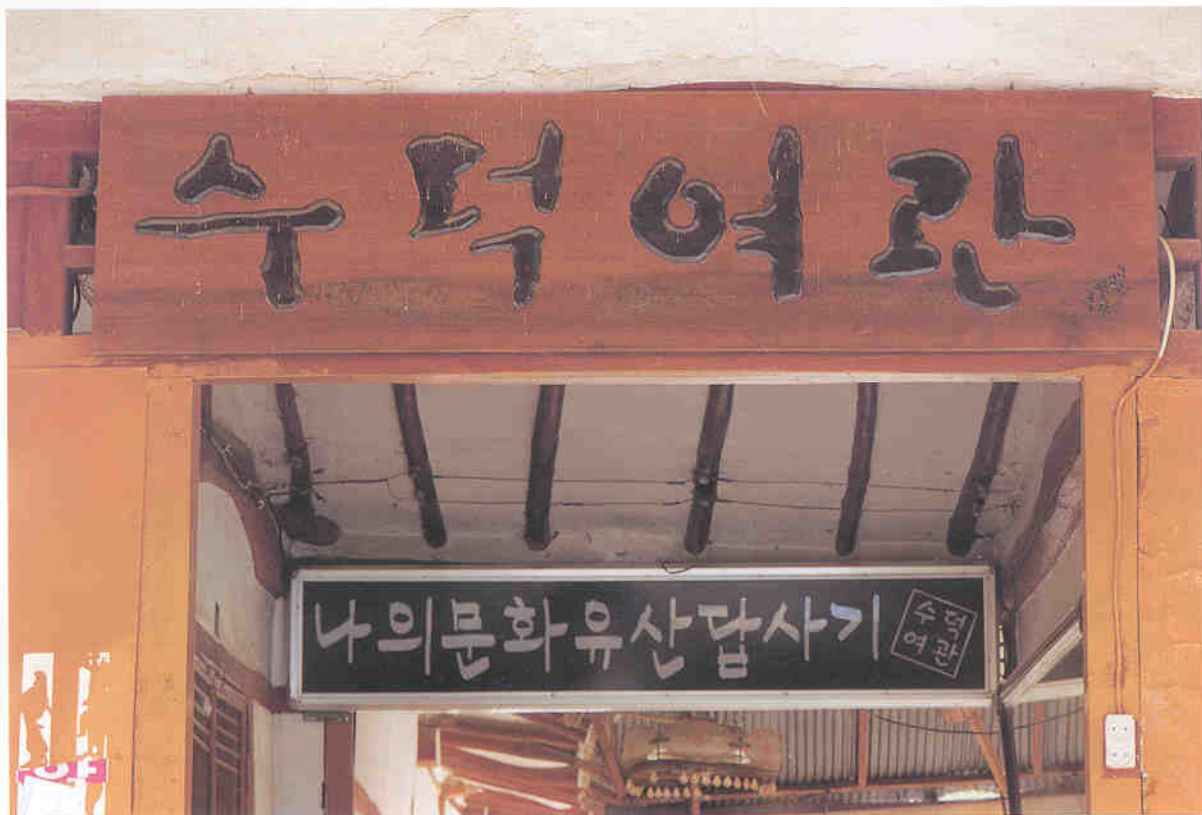 수덕여관
나의문화유산답사기
수덕
여관